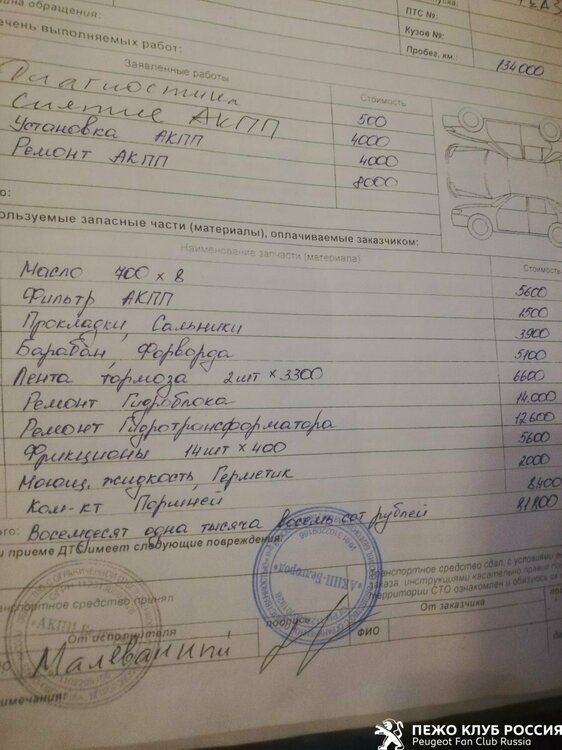 ПТС №:
Кузов №:
Пробег, км.: 134000
ина обращения:
ечень выполняемых работ:
Заявленные работы Стоимость
Диагностика 500
Снятие АКПП 4000
Установка АКПП 4000
Ремонт АКПП 8000
го:
ользуемые запасные части (материалы), оплачиваемые заказчиком:
Наименование запчасти (материала) Стоимость
Масло 700 х 8 5600
Фильтр АКПП 1500
Прокладки, Сальники 3900
Барабан, Форворда 5100
Лента тормоза 2 шт х 3300 6600
Ремонт Гидроблока 14.000
Ремонт Гидротрансформатора 12600
Фрикционы 14 шт х 400 5600
Моющ. жидкость, Герметик 2000
Ком-кт Поршней 8400
ого: Восемдесят одна тысяча восемь сот рублей 81800
и приеме ДТС имеет следующие повреждения:
анспортное средство принял
Транспортное средство сдал, с условиями
заказа, инструкциями касательно правил
территории СТО ознакомлен и обязуюсь их
От исполнителя
подпись
ФИО
От заказчика
"АКПП-Белгород"
Малеванный
имечания:
ПЕЖО КЛУБ РОССИЯ
Peugeot Fan Club Russia